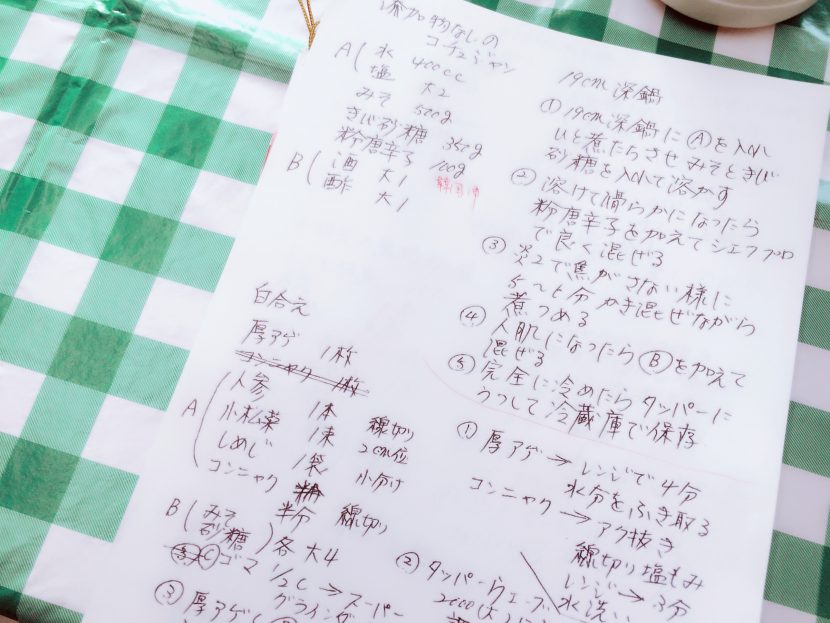 添加物なしの
コチュジャン
A 水 400cc
塩 大2
みそ 500g
きび砂糖 350g
粉唐辛子 100g
B 酒 大1
酢 大1
19cm深鍋
① 19cm深鍋にⒶを入れ
ひと煮たちさせみそときび
砂糖を入れて溶かす
② 溶けて滑らかになったら
粉唐辛子を加えてシェフプロ
で良く混ぜる
③ 炎2で焦がさない様に
分かき混ぜながら
煮つめる
④ 人肌になったらⒷを加えて
混ぜる
⑤ 完全に冷めたらタッパーに
うつして冷蔵庫で保存
白合え
厚アゲ 1枚
コンニャク 1枚
A 人参 1本 線切り
小松菜 1束 2cm位
しめじ 1袋 小分け
コンニャク 半分 線切り
B みそ
砂糖 各大4
C ゴマ 1/2C → スーパー
グラインダ
③ 厚アゲ
① 厚アゲ → レンジで4分
水分をふき取る
コンニャク → アク抜き
線切り塩もみ
レンジ → 3分
水洗い
② タッパーウェーブ
2000(大)に